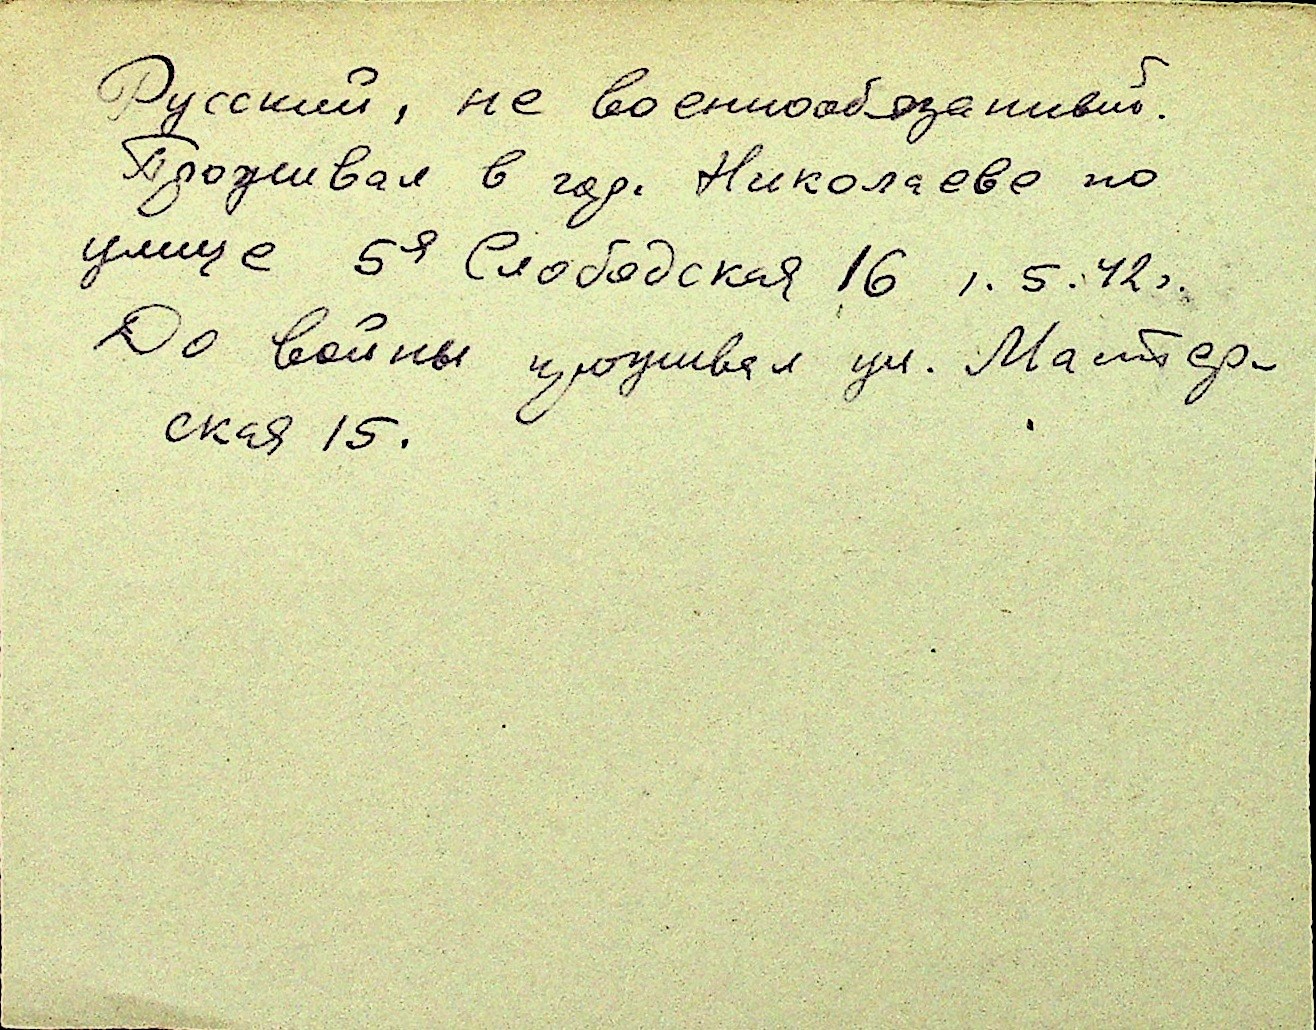 Русский, не военнообязанный.
Проживал в гор. Николаеве по
улице 5я Слободская 16 1.5.42г.
До войны проживал ул. Мастер-
ская 15.